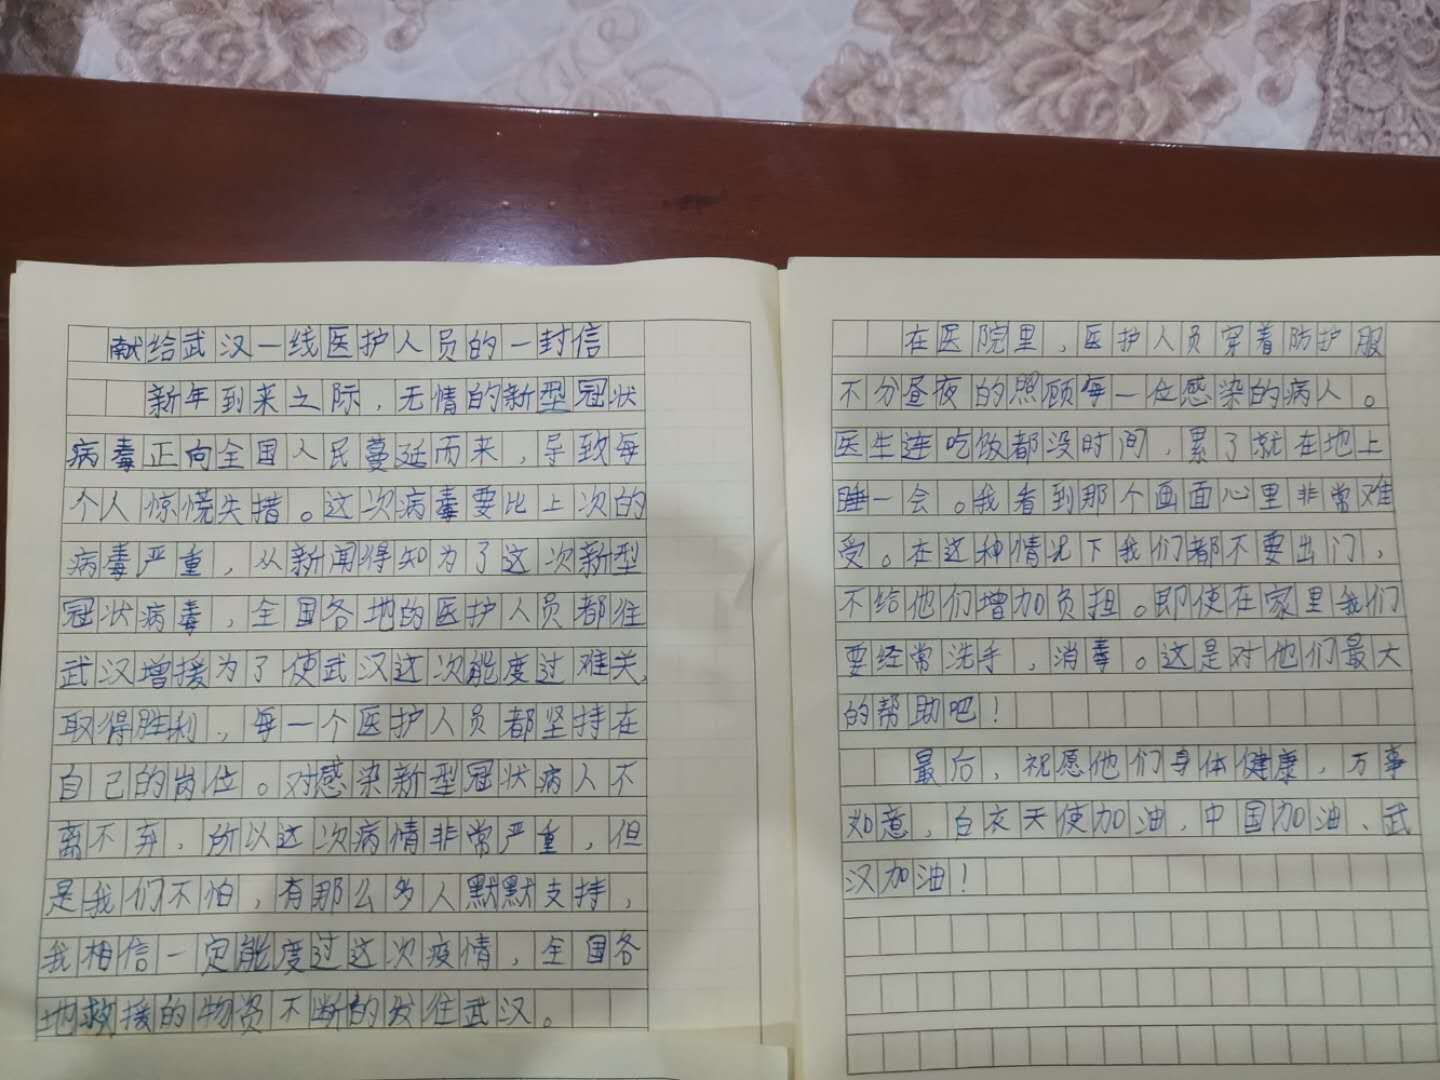 献给武汉一线医护人员的一封信
新年到来之际，无情的新型冠状
病毒正向全国人民蔓延而来，导致每
个人惊慌失措。这次病毒要比上次的
病毒严重，从新闻得知为了这次新型
冠状病毒，全国各地的医护人员都往
武汉增援为了使武汉这次能度过难关，
取得胜利，每一个医护人员都坚持在
自己的岗位。对感染新型冠状病人不
离不弃，所以这次病情非常严重，但
是我们不怕，有那么多人默默支持，
我相信一定能度过这次疫情，全国各
地救援的物资不断的发往武汉。
在医院里，医护人员穿着防护服
不分昼夜的照顾每一位感染的病人。
医生连吃饭都没时间，累了就在地上
睡一会。我看到那个画面心里非常难
受。在这种情况下我们都不要出门，
不给他们增加负担。即使在家里我们
要经常洗手，消毒。这是对他们最大
的帮助吧！
最后，祝愿他们身体健康，万事
如意，白衣天使加油，中国加油、武
汉加油！